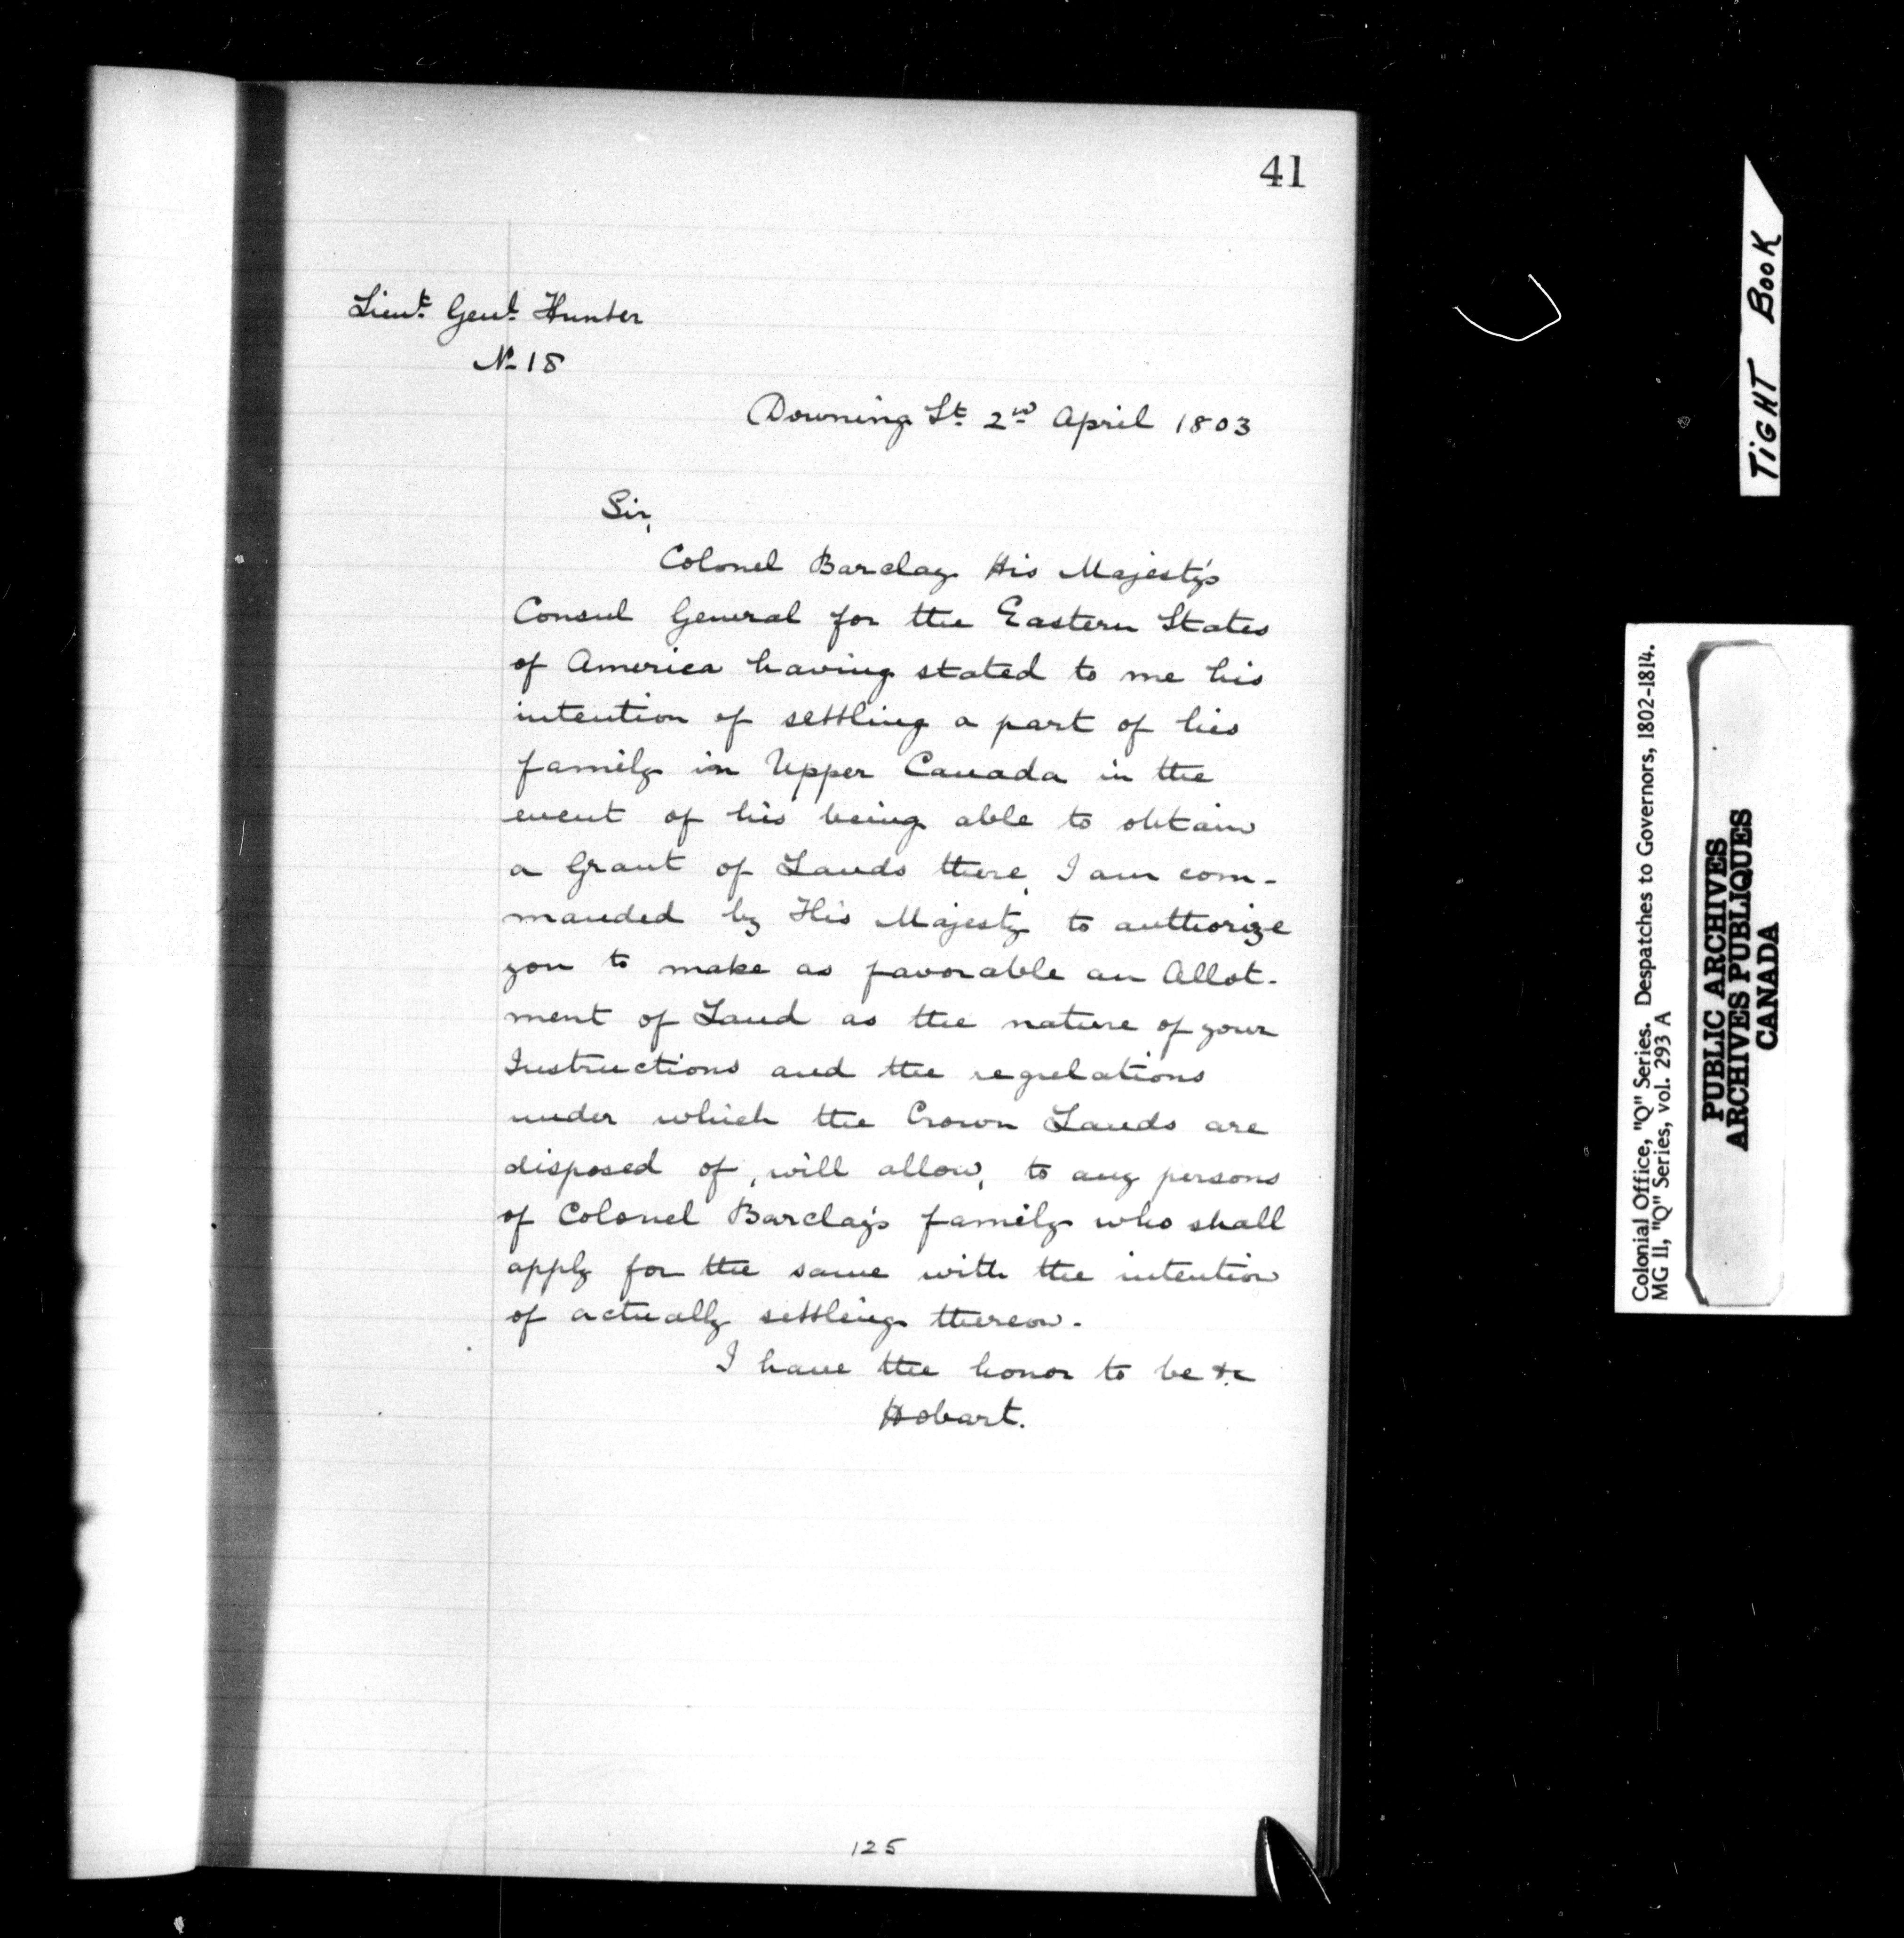 41
Lieut. Genl. Hunter
No 18
Downing St. 2nd April 1803
Sir,
Colonel Barclay His Majesty's
Consul General for the Eastern States
of America having stated to me his
intention of settling a part of his
family in Upper Canada in the
event of his being able to obtain
a Grant of Lands there, I am com-
manded by His Majesty to authorize
you to make as favorable an Allot-
ment of Land as the nature of your
Instructions and the regulations
under which the Crown Lands are
disposed of, will allow, to any persons
of Colonel Barclay's family who shall
apply for the same with the intention
of actually settling thereon.
I have the honor to be &c
Hobart.
125
TIGHT BOOK
Colonial Office, "Q" Series. Despatches to Governors, 1802-1814.
MG 11, "Q" Series, vol. 293 A
PUBLIC ARCHIVES
ARCHIVES PUBLIQUES
CANADA